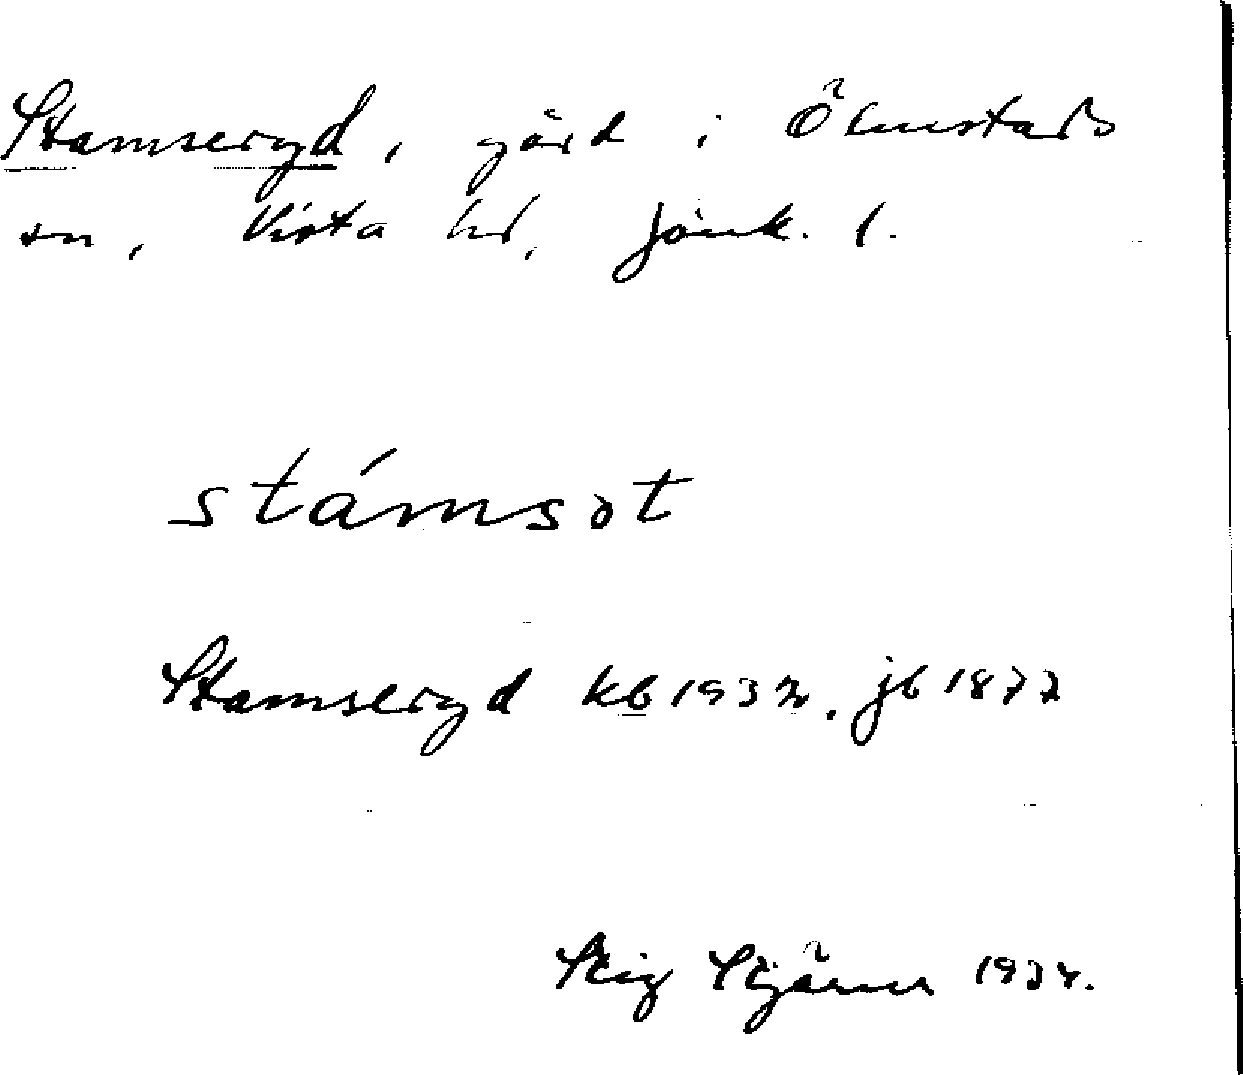 Stamseryd, gård i Ölmstads
sn, Vista hd, Jönk. l.
stámsət
Stamseryd kb 1932, jb 1877
Stig Stjärner 1934.